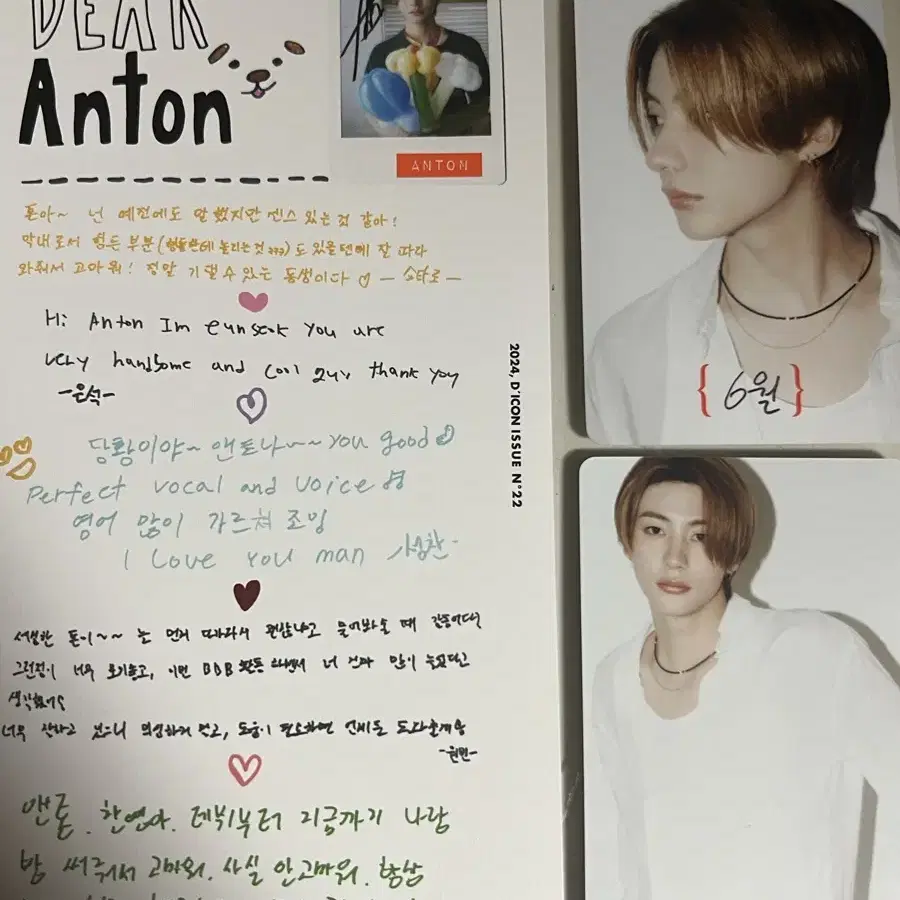 DEAR
Anton
ANTON
톤아~ 넌 예전에도 말했지만 센스 있는 것 같아!
막내로서 힘든 부분(형들한테 놀리는것 ㅋㅋㅋ)도 있을텐데 잘 따라
와줘서 고마워! 정말 기댈 수 있는 동생이다 ♡ — 쇼타로 —
Hi Anton Im eunseok You are
very handsome and cool guy thank you
-은석-
당황이야~ 앤토나~~ You good
Perfect vocal and voice
영어 많이 가르쳐 조잉
I Love You man 성찬-
톤이~~ 늘 먼저 때
너무 이번 BBB 활동 하면서 너 많이 늘었다고
생각했어
너무 잘하고 있으니 걱정하지 말고, 도움이 필요하면 언제든 도와줄게
-원빈-
앤톤. 찬영아. 데뷔부터 지금까지 나랑
방 써줘서 고마워. 사실 안고마워. 항상
2024, D'ICON ISSUE N°22
{ 6월 }